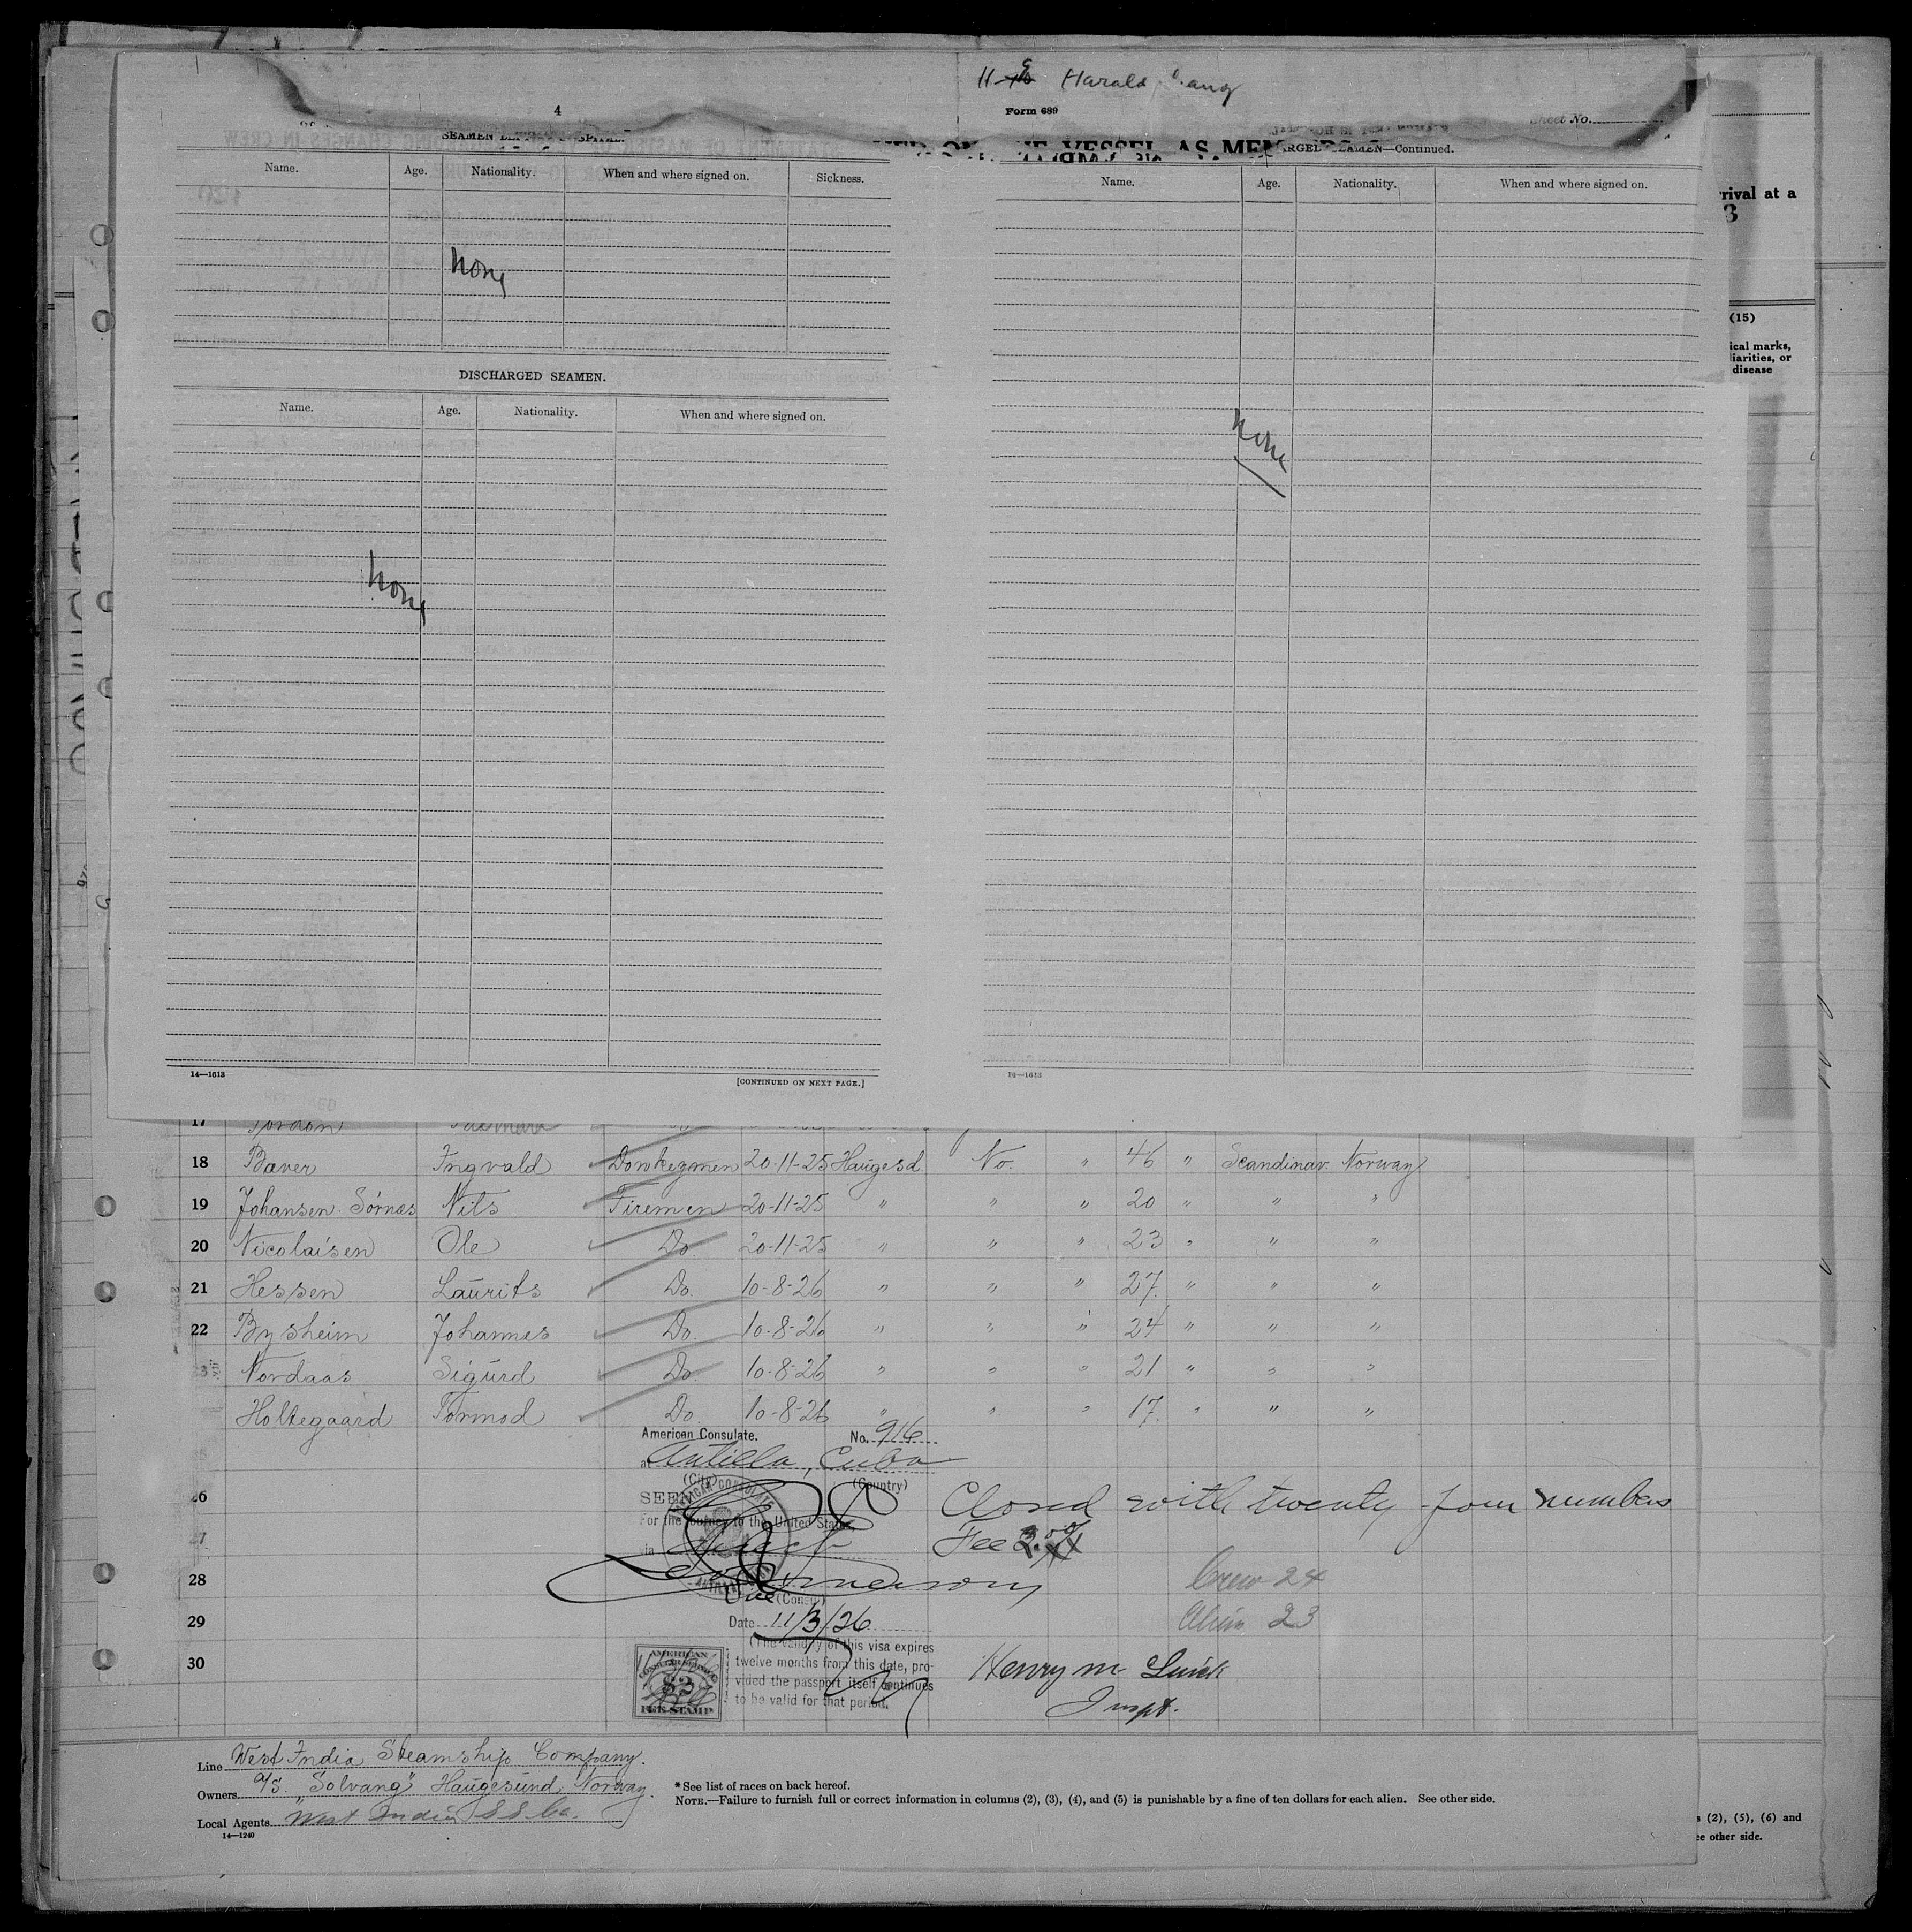 Harald
4
Form 689
Sheet No.
SEAMEN
VESSEL AS
SEAMEN—Continued.
Name. Age. Nationality. When and where signed on. Sickness.
None
DISCHARGED SEAMEN.
Name. Age. Nationality. When and where signed on.
None
14—1613
[CONTINUED ON NEXT PAGE.]
Name. Age. Nationality. When and where signed on.
None
14—1613
rival at a
3
(15)
ical marks,
liarities, or
disease
17
18 Baver Ingvald Donkeymen 20-11-25 Haugesd. No. " 46 " Scandinav. Norway
19 Johansen Sórnas Nils Firemen 20-11-25 " " " 20 " " "
20 Nicolaisen Ole Do. 20-11-25 " " " 23 " " "
21 Hessen Laurits Do. 10-8-26 " " " 27 " " "
22 Bysheim Johannes Do. 10-8-26 " " " 24 " " "
23 Nordaas Sigurd Do. 10-8-26 " " " 21 " " "
Holtegaard Tormod Do. 10-8-26 " " " 17 " " "
American Consulate. No. 916
at Antilla, Cuba
(City) (Country)
26 SEEN Closed with twenty-four numbers
For the journey to the United States
27 via Fee
28 Crew 24
(Consul)
29 Date 11/3/26 Alien 23
(The validity of this visa expires
30 twelve months from this date, pro-
vided the passport itself continues
to be valid for that period.
AMERICAN
$2
FEE STAMP
Henry M
Inspt.
Line West India Steamship Company.
Owners A/S "Solvang" Haugesund, Norway.
Local Agents West India S S Co.
14—1240
*See list of races on back hereof.
NOTE.—Failure to furnish full or correct information in columns (2), (3), (4), and (5) is punishable by a fine of ten dollars for each alien. See other side.
s (2), (5), (6) and
ee other side.